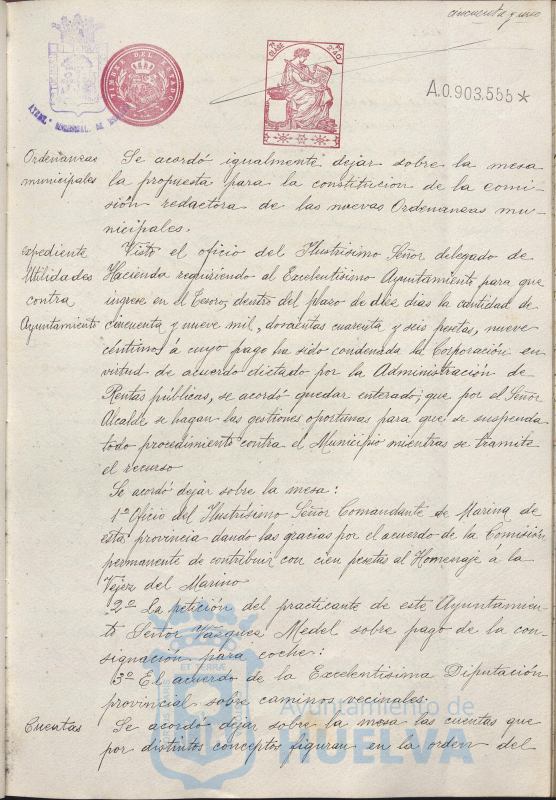 cincuenta y uno
TIMBRE DEL ESTADO
CLASE
A.0.903.555*
Ordenanzas
municipales
Se acordó igualmente dejar sobre la mesa
la propuesta para la constitucion de la comi-
sión redactora de las nuevas Ordenanzas mu-
nicipales.
expediente
Utilidades
contra
Ayuntamiento
Visto el oficio del Ilustrísimo Señor delegado de
Hacienda requiriendo al Excelentísimo Ayuntamiento para que
ingrese en el Tesoro, dentro del plazo de diez dias la cantidad de
cincuenta y nueve mil, doscientas cuarenta y seis pesetas, nueve
céntimos á cuyo pago ha sido condenada la Corporación en
virtud de acuerdo dictado por la Administración de
Rentas públicas, se acordó quedar enterado; que por el Señor
Alcalde se hagan las gestiones oportunas para que se suspenda
todo procedimiento contra el Municipio mientras se tramite
el recurso
Se acordó dejar sobre la mesa:
1º Oficio del Ilustrísimo Señor Comandante de Marina de
esta provincia dando las gracias por el acuerdo de la Comisión
permanente de contribuir con cien pesetas al Homenaje á la
Vejez del Marino
2º La petición del practicante de este Ayuntamien-
to Señor Vázquez Medel sobre pago de la con-
signación para coche:
3º El acuerdo de la Excelentísima Diputación
provincial sobre caminos vecinales.
Cuentas
Se acordó dejar sobre la mesa las cuentas que
por distintos conceptos figuran en la orden del
ET TERRA
Ayuntamiento de
HUELVA